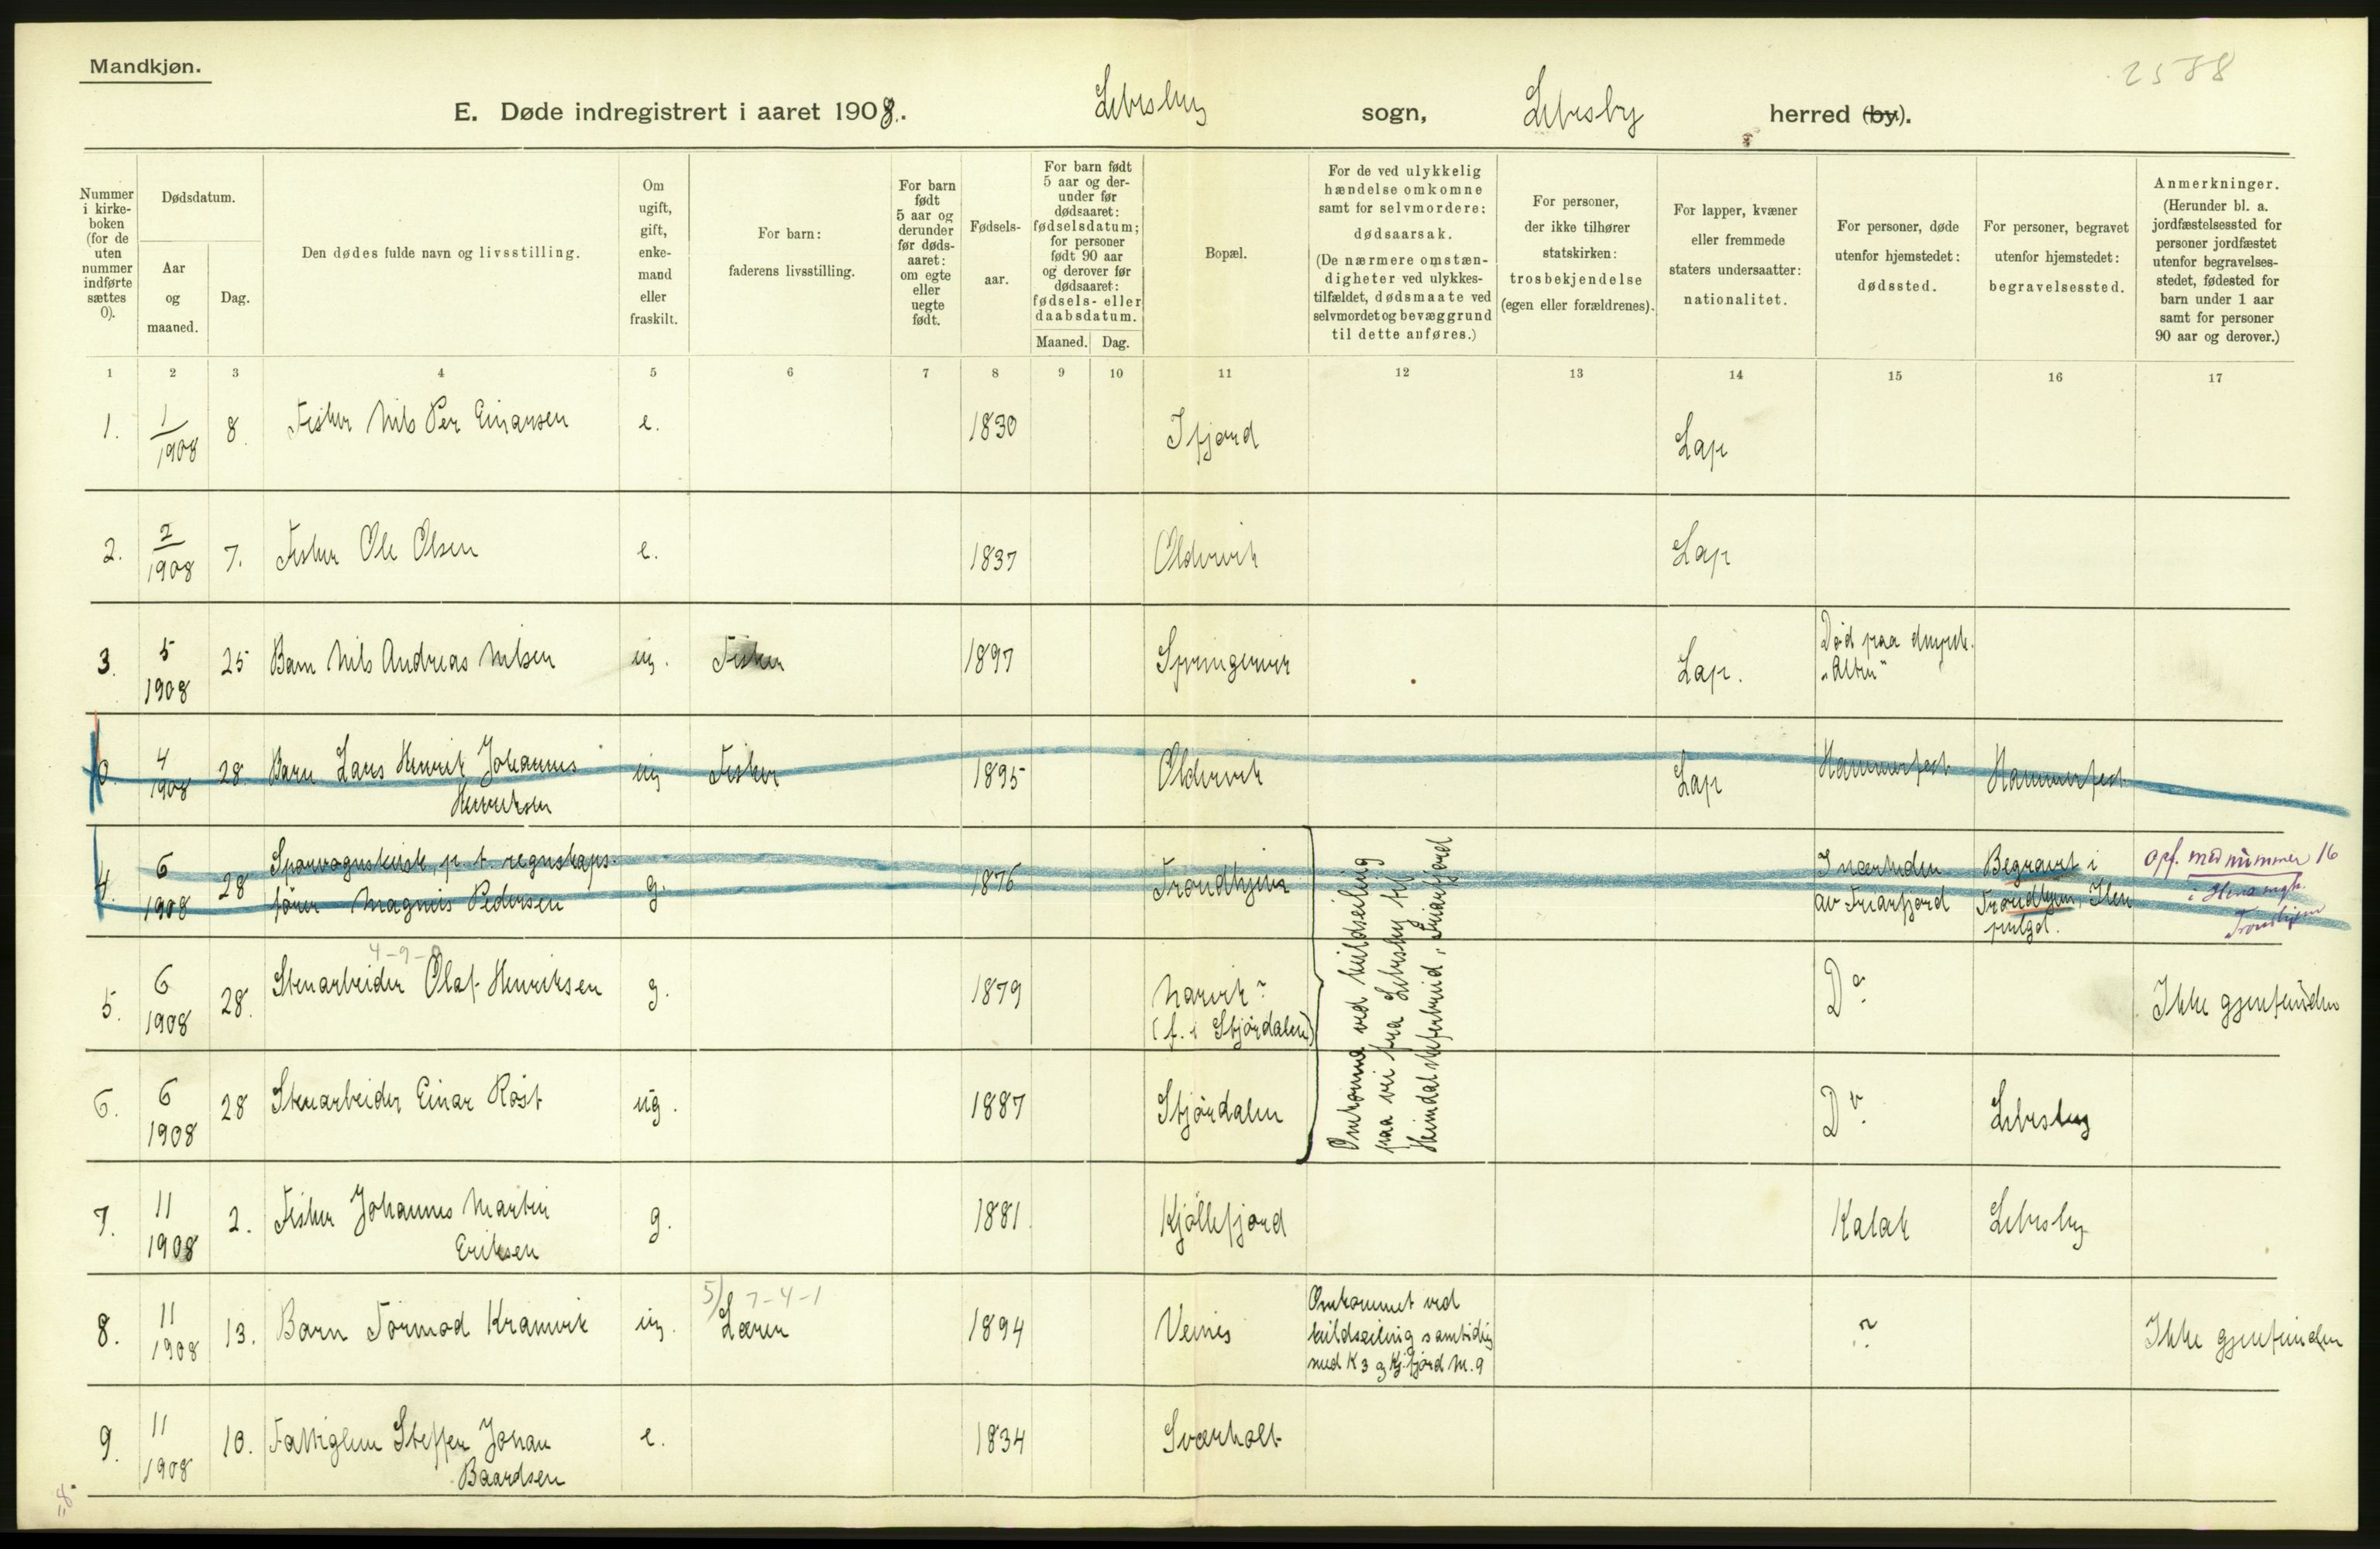 Mandkjøn.
2588
E. Døde indregistrert i aaret 1908. Lebesby sogn, Lebesby herred (by).
Nummer i kirke-boken (for de uten nummer indførte sættes 0).
Dødsdatum.
Aar og maaned.
Dag.
Den dødes fulde navn og livsstilling.
Om ugift, gift, enke-mand eller fraskilt.
For barn: faderens livsstilling.
For barn født 5 aar og derunder før døds-aaret: om egte eller uegte født.
Fødsels-aar.
For barn født 5 aar og der-under før dødsaaret: fødselsdatum; for personer født 90 aar og derover før dødsaaret: fødsels- eller daabsdatum.
Maaned. Dag.
Bopæl.
For de ved ulykkelig hændelse omkomne samt for selvmordere: dødsaarsak. (De nærmere omstæn-digheter ved ulykkes-tilfældet, dødsmaate ved selvmordet og bevæggrund til dette anføres.)
For personer, der ikke tilhører statskirken: trosbekjendelse (egen eller forældrenes).
For lapper, kvæner eller fremmede staters undersaatter: nationalitet.
For personer, døde utenfor hjemstedet: dødssted.
For personer, begravet utenfor hjemstedet: begravelsessted.
Anmerkninger. (Herunder bl. a. jordfæstelsessted for personer jordfæstet utenfor begravelses-stedet, fødested for barn under 1 aar samt for personer 90 aar og derover.)
1 2 3 4 5 6 7 8 9 10 11 12 13 14 15 16 17
1. 1/1908 8. Fisker Nils Per Einarsen e. 1830 Ifjord Lap
2. 2/1908 7. Fisker Ole Olsen e. 1837 Oldervik Lap
3. 5 1908 25 Barn Nils Andreas Nilsen ug. Fisker 1897 Springervik Lap. Død paa dmpsk. "Alten"
0. 4 1908 28. Barn Lars Henrik Johannes Henriksen ug Fisker 1895 Oldervik Lap Hammerfest Hammerfest
4. 6 1908 28 Sporvognskusk, p. t. regnskaps-fører Magnus Pedersen g. 1876 Trondhjem I nærheden av Friarfjord Begravet i Trondhjem, Ilen opf. med nummer 16 i Ilens Trondhjem
4-9-8
5. 6 1908 28. Stenarbeider Olaf Henriksen g. 1879 Narvik? (f. i Stjørdalen) Do. Ikke gjenfunden
6. 6 1908 28 Stenarbeider Einar Røst ug. 1887 Stjørdalen Do. Lebesby
Omkomne ved kuldseiling
paa vei fra Lebesby til
Heimdal Friarfjord
7. 11 1908 2. Fisker Johannes Martin Eriksen g. 1881 Kjøllefjord Kalak Lebesby
5) 7-4-1
8. 11 1908 13. Barn Tormod Kramvik ug. Lærer 1894 Veines Omkommet ved kuldseiling samtidig med K 3 og Kj.fjord M. 9 ? Ikke gjenfunden
9. 11 1908 10. Fattiglem Steffen Johan Baardsen e. 1834 Sværholt